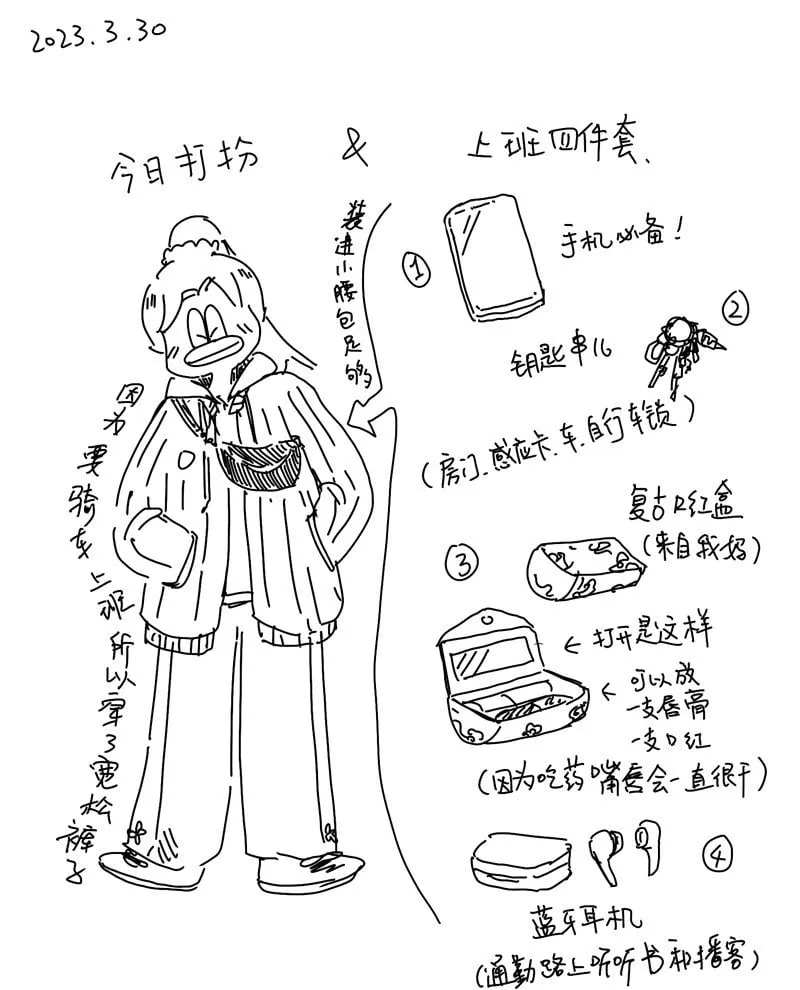 2023.3.30
今日打扮 & 上班四件套、
装进小腰包足够
因为要骑车上班所以穿了宽松裤子
①
手机必备!
②
钥匙串儿
(房门、感应卡、车、自行车锁)
③
复古口红盒
(来自我妈)
←打开是这样
←可以放
一支唇膏
一支口红
(因为吃药嘴唇会一直很干)
④
蓝牙耳机
(通勤路上听听书和播客)